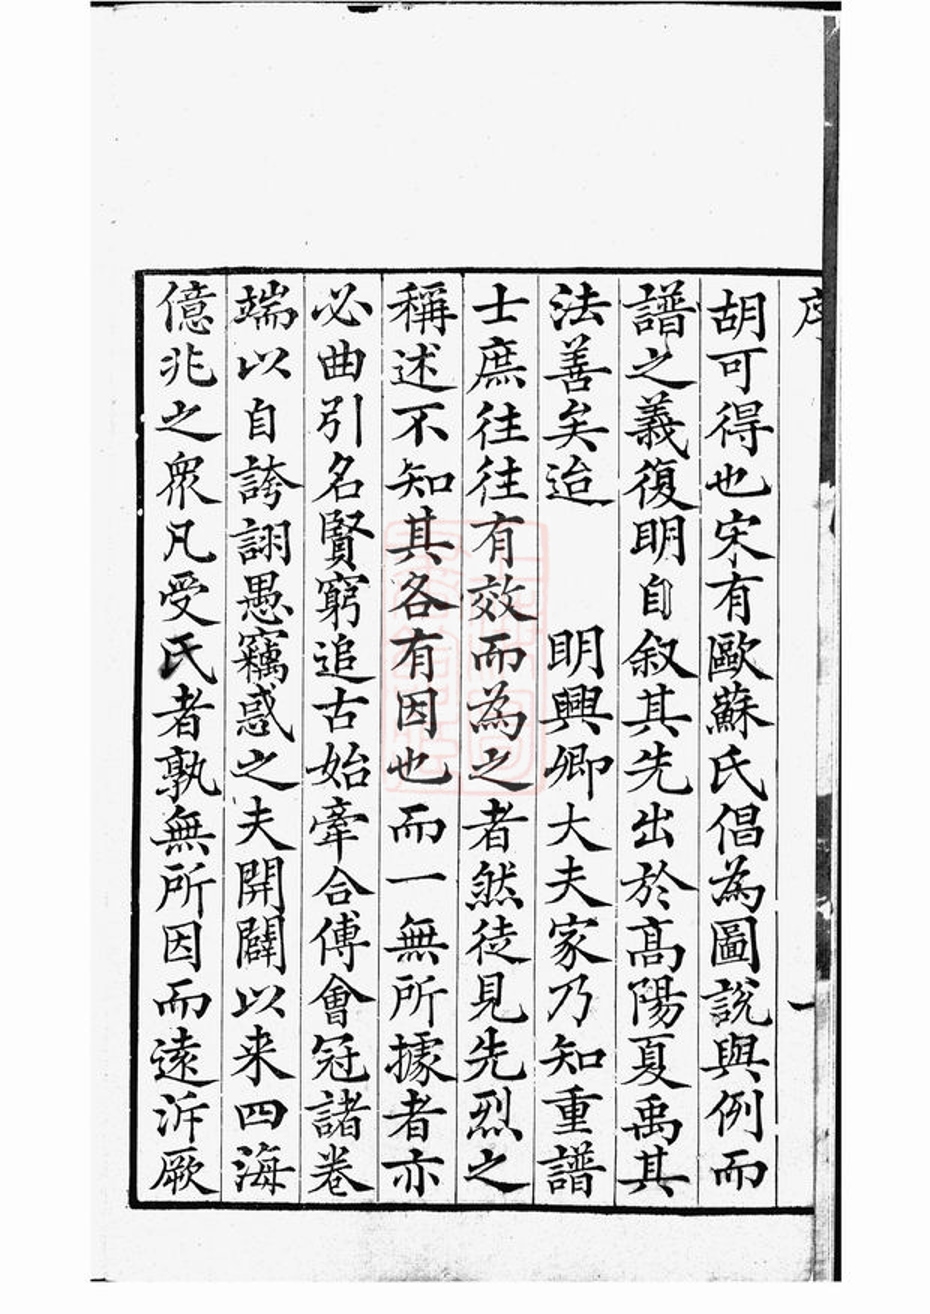 序 一
胡可得也宋有歐蘇氏倡為圖說與例而
譜之義復明自叙其先出於高陽夏禹其
法善矣迨 明興卿大夫家乃知重譜
士庶往往有效而為之者然徒見先烈之
稱述不知其各有因也而一無所據者亦
必曲引名賢窮追古始牽合傅會冠諸卷
端以自誇詡愚竊惑之夫開闢以来四海
億兆之衆凡受氏者孰無所因而遠泝厥